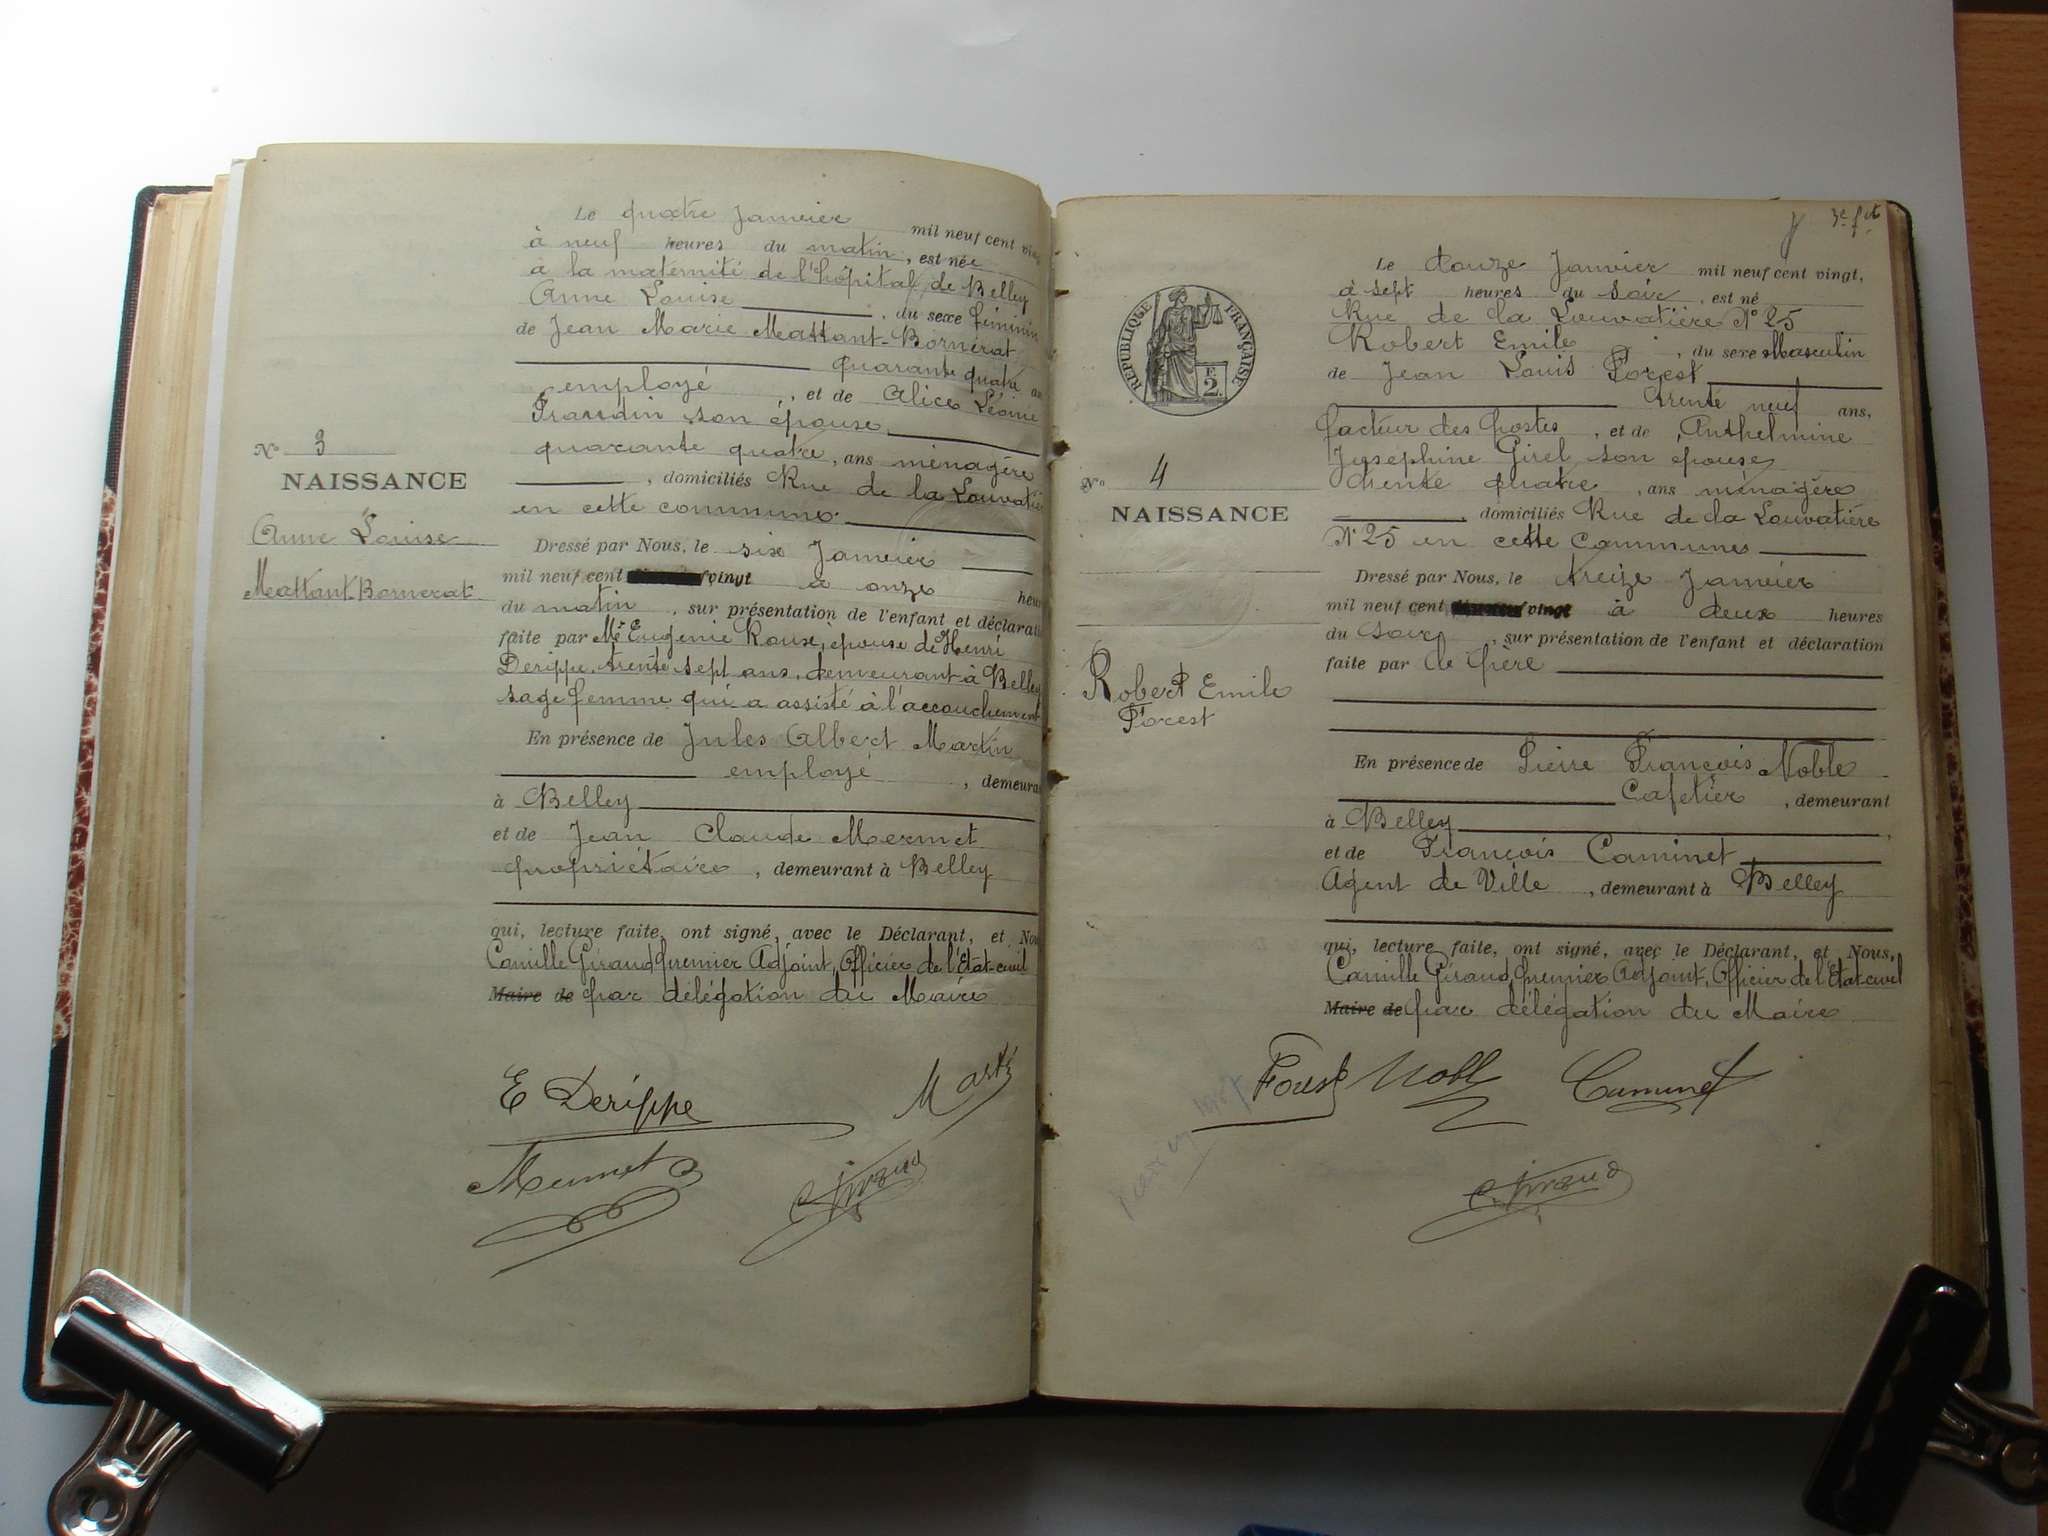 Le quatre Janvier mil neuf cent vingt
à neuf heures du matin, est née
à la maternité de l'hôpital de Belley
Anne Louise, du sexe féminin
de Jean Marie Mattant-Bornerat
quarante quatre ans
employé, et de Alice Léonie
Fraudin son épouse
quarante quatre, ans ménagère
, domiciliés Rue de la Louvatière
en cette commune.
N° 3
NAISSANCE
Anne Louise
Mattant-Bornerat
Dressé par Nous, le six Janvier
mil neuf cent vingt à onze heures
du matin, sur présentation de l'enfant et déclaration
faite par Me Eugénie Roux, épouse de Henri
Derippe, trente sept ans, demeurant à Belley
sage femme qui a assisté à l'accouchement
En présence de Jules Albert Martin
employé, demeurant
à Belley
et de Jean Claude Mermet
propriétaire, demeurant à Belley
qui, lecture faite, ont signé, avec le Déclarant, et Nous
Camille Giraud premier Adjoint, Officier de l'Etat-civil
Maire de par délégation du Maire
E Derippe Marti
Mermet C. Giraud
3e fet
RÉPUBLIQUE FRANÇAISE
F
2.
Le douze Janvier mil neuf cent vingt,
à sept heures du soir, est né
Rue de la Louvatière N° 25
Robert Emile, du sexe Masculin
de Jean Louis Forest
trente neuf ans,
facteur des postes, et de Anthelmine
Josephine Girel son épouse
trente quatre, ans ménagère
, domiciliés Rue de la Louvatière
N° 25 en cette commune
N° 4
NAISSANCE
Robert Emile
Forest
Dressé par Nous, le treize Janvier
mil neuf cent vingt à deux heures
du soir, sur présentation de l'enfant et déclaration
faite par le père
En présence de Pierre François Noble
Cafetier, demeurant
à Belley,
et de François Caminet
Agent de Ville, demeurant à Belley
qui, lecture faite, ont signé, avec le Déclarant, et Nous,
Camille Giraud, premier Adjoint, Officier de l'Etat-civil
Maire de par délégation du Maire
Forest Nobl Caminet
C. Giraud